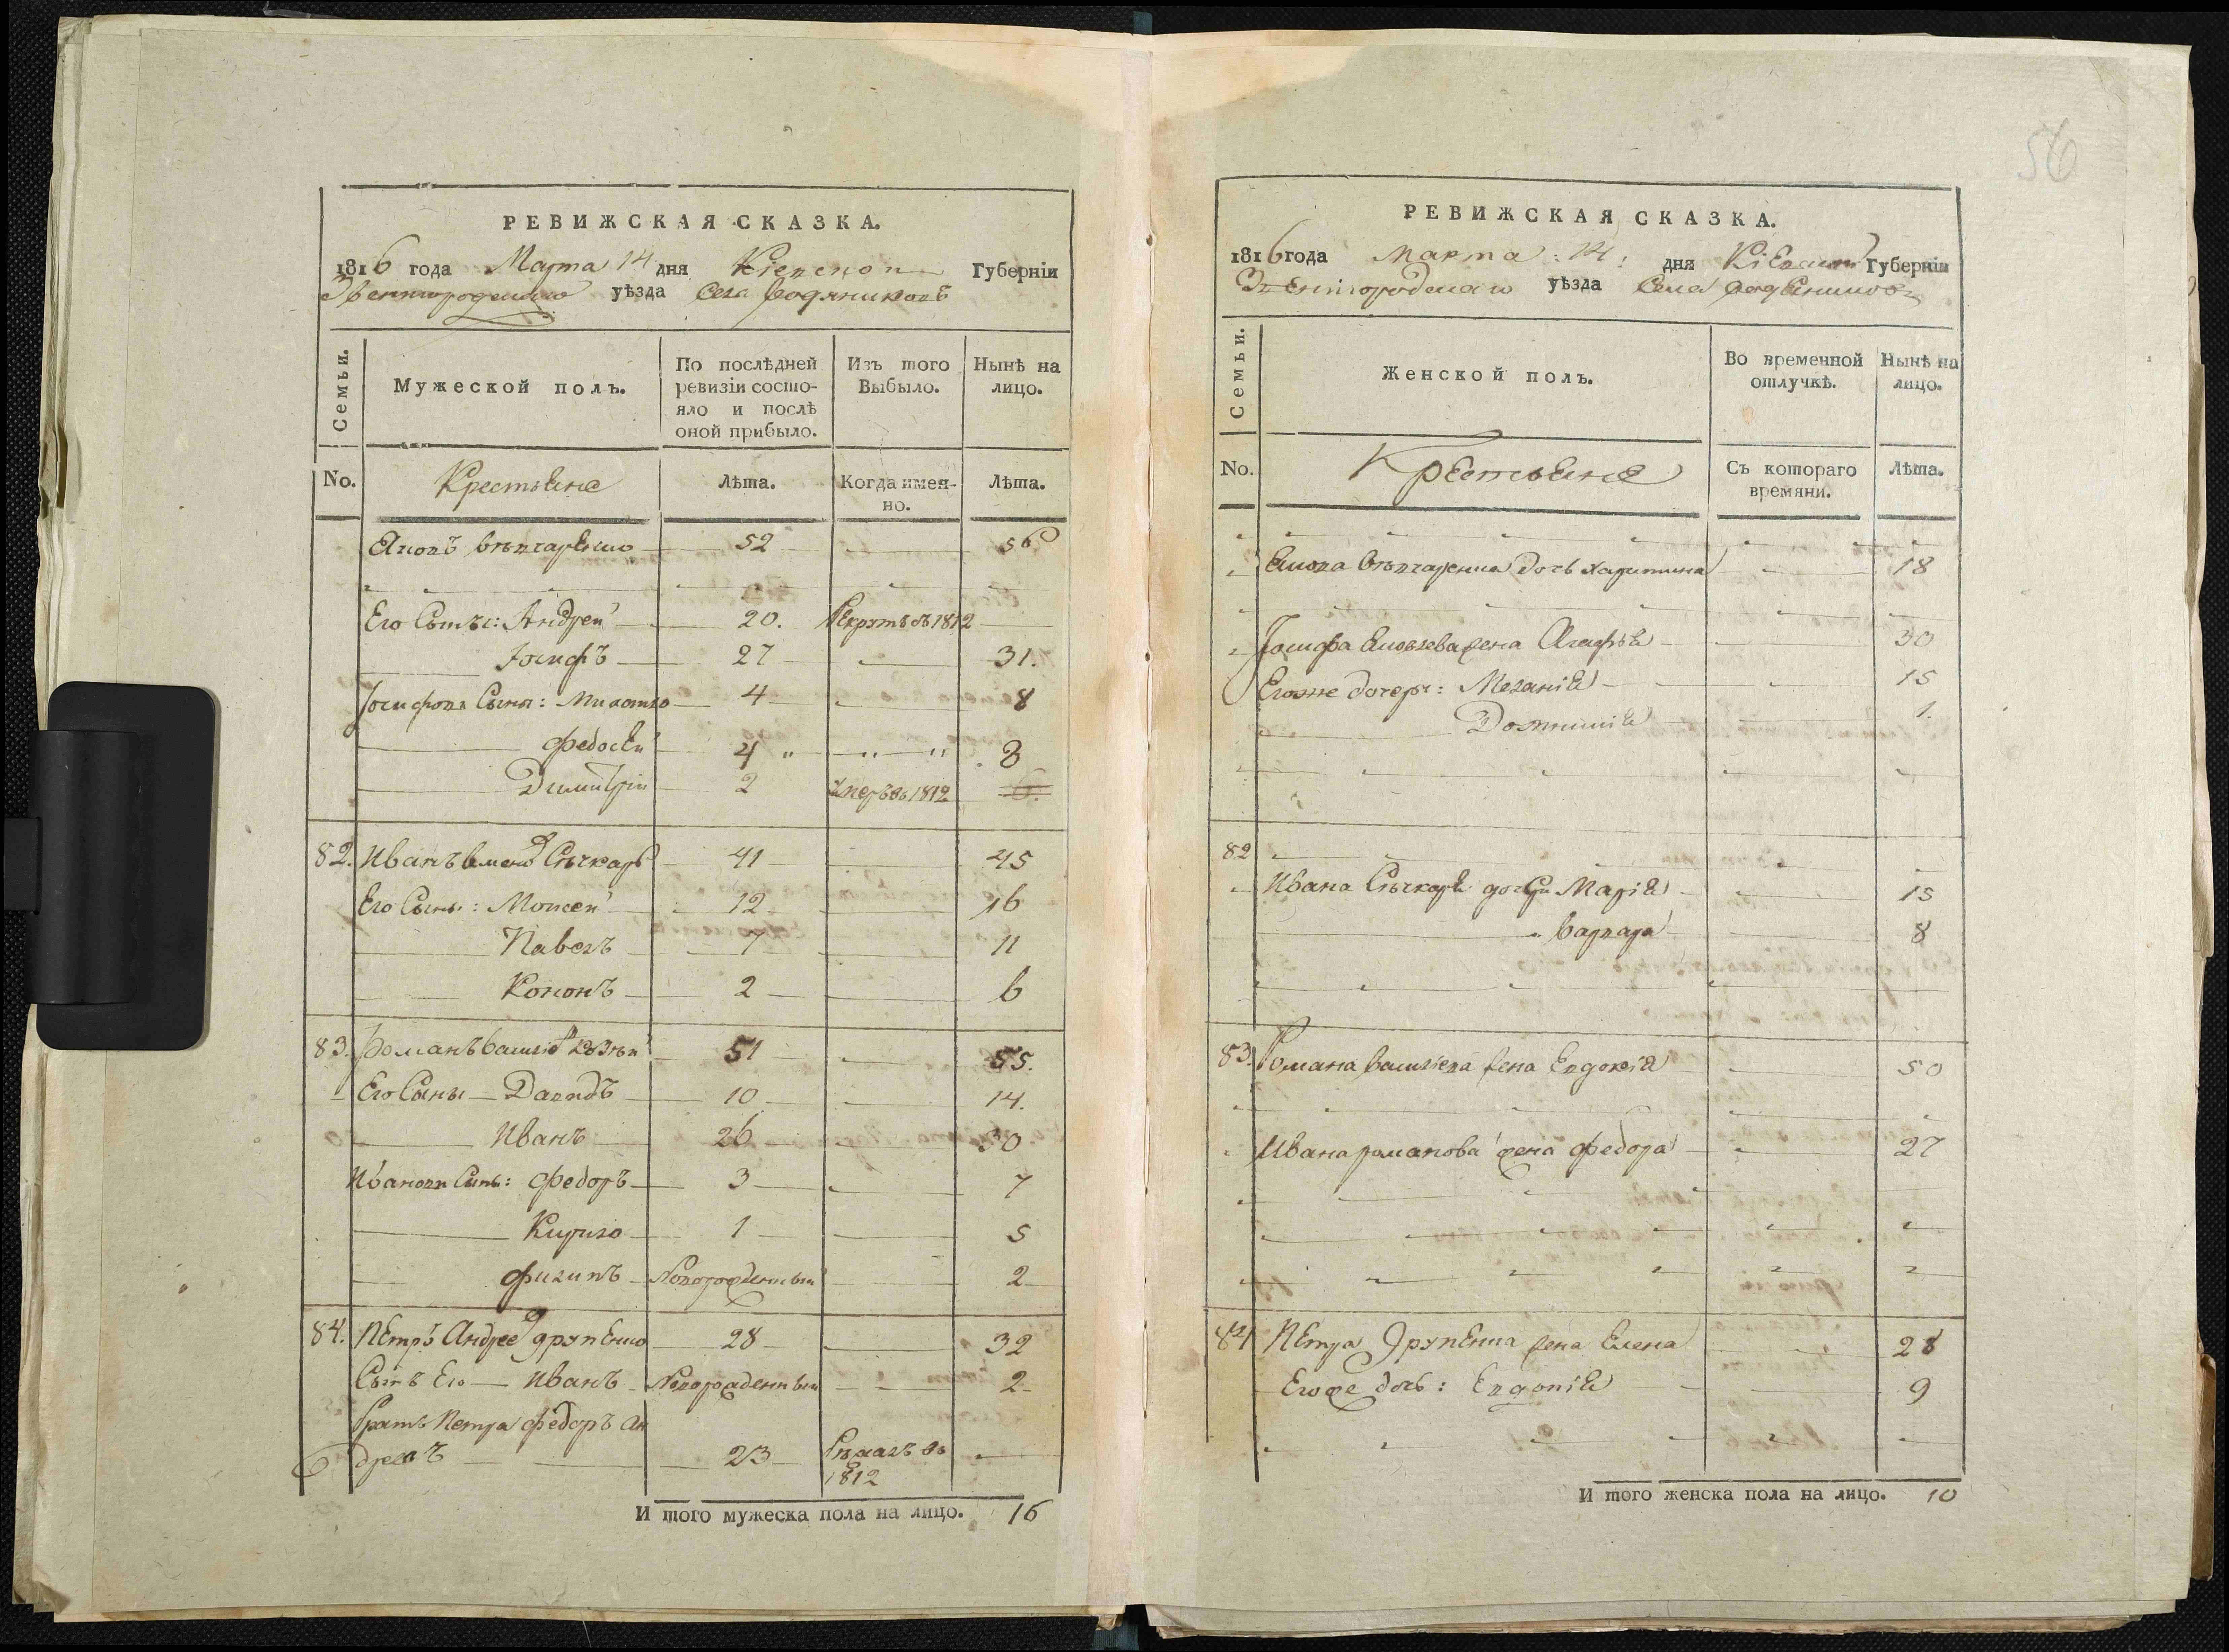 56
РЕВИЖСКАЯ СКАЗКА.
1816 года Марта 14 дня Кіевской Губерніи
Звенигородскаго уѣзда Села Водяниковъ
Семьи.
Мужеской полъ.
По послѣдней ревизіи состо-
яло и послѣ оной прибыло.
Изъ того Выбыло.
Нынѣ на лицо.
No.
Крестьяне
Лѣта.
Когда имен-
но.
Лѣта.
Яковъ 52 56
Его Сынъ: Андрей 20. Рекрутъ въ 1812
Іосифъ 27 31.
Іосифовы Сыны: 4 8
Федосѣй 4 " " " 8
Димитрій 2 Умеръ въ 1812 6.
82. Иванъ Сѣчкарь 41 45
Его Сыны: Моисей 12 16
Павелъ 7 11
Кононъ 2 6
83. Романъ 51 55.
Его Сыны Давидъ 10 14.
Иванъ 26 30
Ивановы Сыны: Федоръ 3 7
Кирило 1 5
Филипъ Новорожденный 2
84. Петръ Андрее 28 32
Сынъ Его Иванъ Новорожденный 2
Братъ Петра Федоръ Ан
древъ 23 Бѣжалъ въ
1812
И того мужеска пола на лицо. 16
РЕВИЖСКАЯ СКАЗКА.
1816 года Марта 14 дня Кіевской Губерніи
Звенигородскаго уѣзда Села Водяниковъ
Семьи.
Женской полъ.
Во временной отлучкѣ.
Нынѣ на лицо.
No.
Крестьяне
Съ котораго времяни.
Лѣта.
Якова дочь Харитина 18
Іосифа жена Агафья 30
Егоже дочери: Меланія 15
1.
82
Ивана Сѣчкаря дочери Марія 15
Варвара 8
83. Романа Василіева жена Евдокія 50
Ивана Романова жена Федора 27
84 Петра жена Елена 28
Егоже дочь: Евдокія 9
И того женска пола на лицо. 10